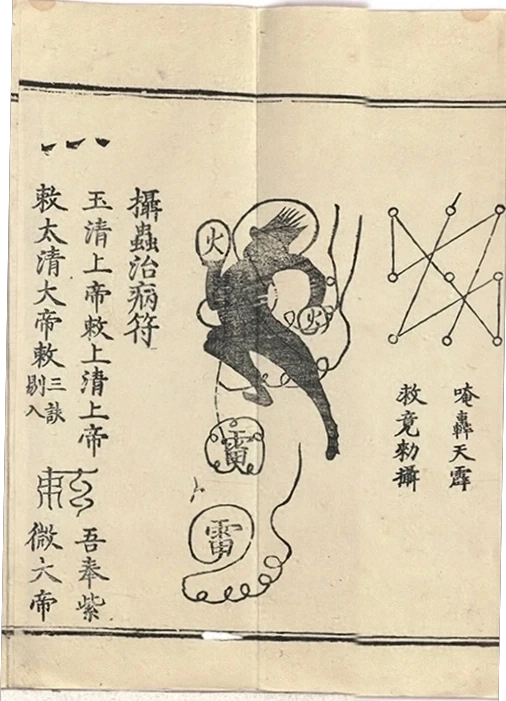 唵轟天霹
敕竟勑攝
火
火
雷
雷
攝蟲治病符
玉清上帝敕上清上帝
吾奉紫
敕太清大帝敕
三訣
剔入
微大帝